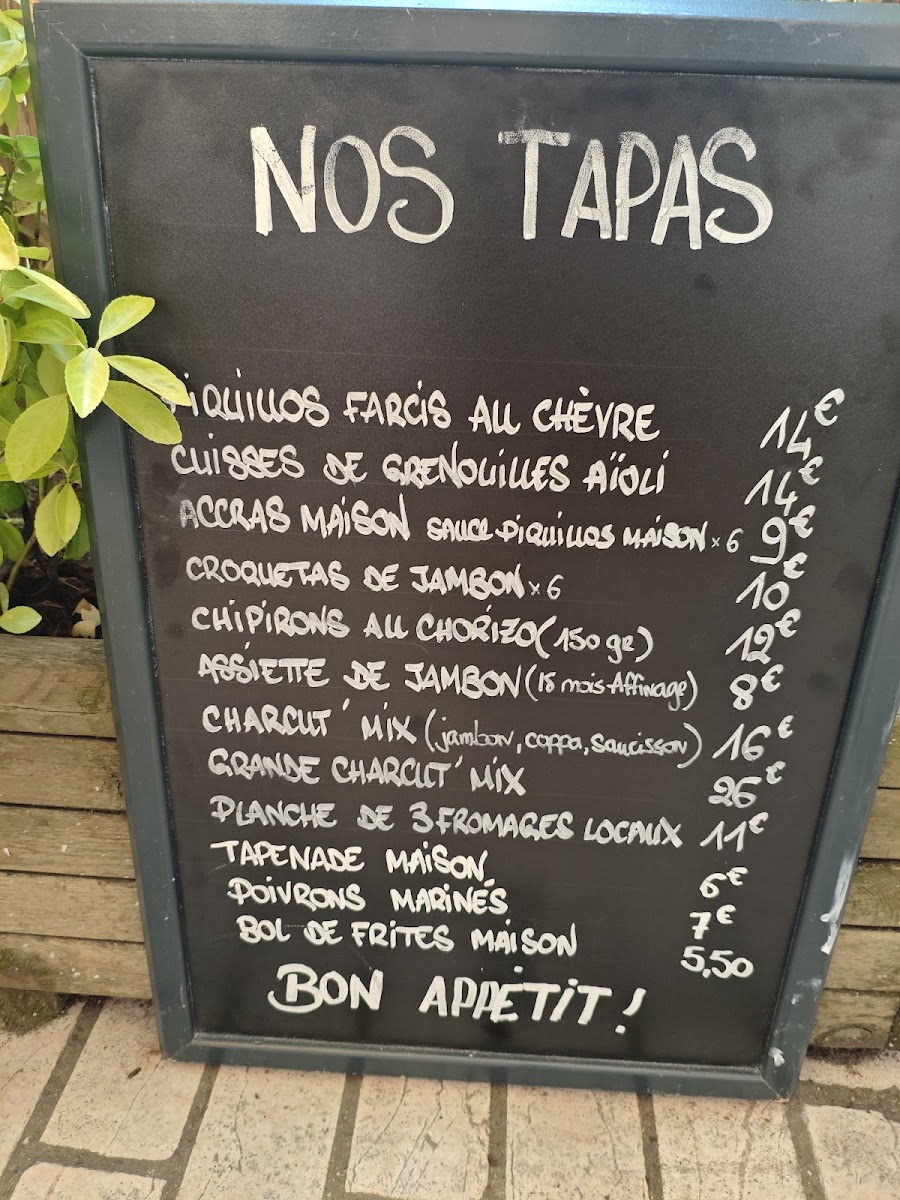 NOS TAPAS
PIQUILLOS FARCIS AU CHÈVRE 14€
CUISSES DE GRENOUILLES AÏOLI 14€
ACCRAS MAISON SAUCE PIQUILLOS MAISON × 6 9€
CROQUETAS DE JAMBON × 6 10€
CHIPIRONS AU CHORIZO (150 gr) 12€
ASSIETTE DE JAMBON (18 mois Affinage) 8€
CHARCUT' MIX (jambon, coppa, Saucisson) 16€
GRANDE CHARCUT' MIX 26€
PLANCHE DE 3 FROMAGES LOCAUX 11€
TAPENADE MAISON 6€
POIVRONS MARINÉS 7€
BOL DE FRITES MAISON 5,50
BON APPÉTIT !